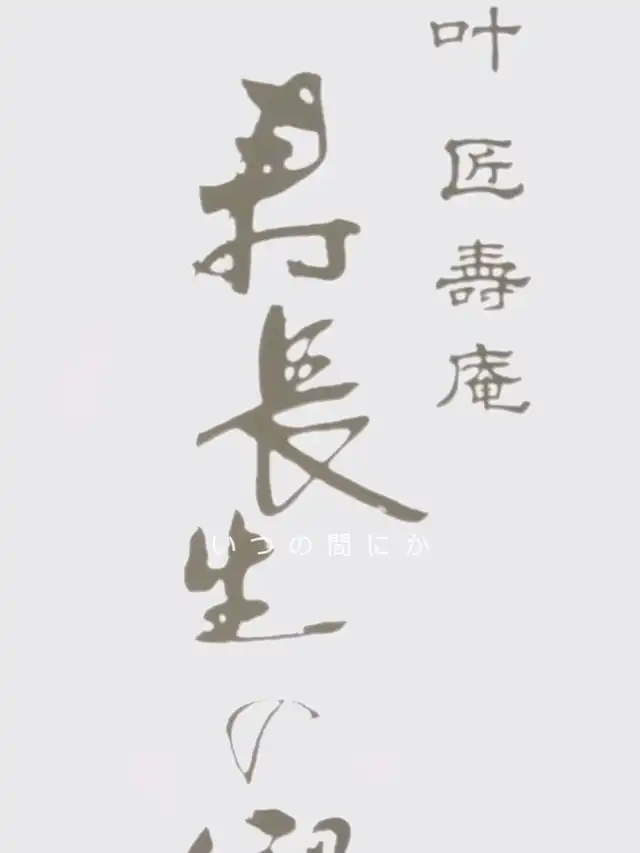 叶匠壽庵
寿長生の
いつの間にか